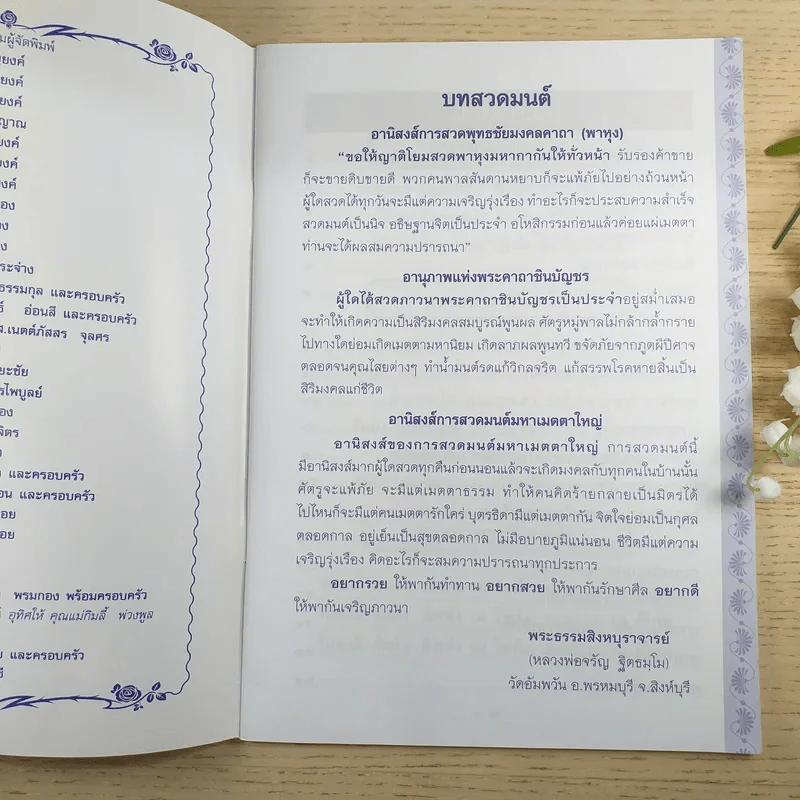 ผู้จัดพิมพ์
ธรรมกุล และครอบครัว
อ่อนสี และครอบครัว
ส.เนตต์ภัสสร จุลศร
และครอบครัว
และครอบครัว
พรมกอง พร้อมครอบครัว
อุทิศให้ คุณแม่กิมลี้ พ่วงพูล
และครอบครัว
บทสวดมนต์
อานิสงส์การสวดพุทธชัยมงคลคาถา (พาหุง)
“ขอให้ญาติโยมสวดพาหุงมหากากันให้ทั่วหน้า รับรองค้าขาย
ก็จะขายดิบขายดี พวกคนพาลสันดานหยาบก็จะแพ้ภัยไปอย่างถ้วนหน้า
ผู้ใดสวดได้ทุกวันจะมีแต่ความเจริญรุ่งเรือง ทำอะไรก็จะประสบความสำเร็จ
สวดมนต์เป็นนิจ อธิษฐานจิตเป็นประจำ อโหสิกรรมก่อนแล้วค่อยแผ่เมตตา
ท่านจะได้ผลสมความปรารถนา”
อานุภาพแห่งพระคาถาชินบัญชร
ผู้ใดได้สวดภาวนาพระคาถาชินบัญชรเป็นประจำอยู่สม่ำเสมอ
จะทำให้เกิดความเป็นสิริมงคลสมบูรณ์พูนผล ศัตรูหมู่พาลไม่กล้ากล้ำกราย
ไปทางใดย่อมเกิดเมตตามหานิยม เกิดลาภผลพูนทวี ขจัดภัยจากภูตผีปีศาจ
ตลอดจนคุณไสยต่างๆ ทำน้ำมนต์รดแก้วิกลจริต แก้สรรพโรคหายสิ้นเป็น
สิริมงคลแก่ชีวิต
อานิสงส์การสวดมนต์มหาเมตตาใหญ่
อานิสงส์ของการสวดมนต์มหาเมตตาใหญ่ การสวดมนต์นี้
มีอานิสงส์มากผู้ใดสวดทุกคืนก่อนนอนแล้วจะเกิดมงคลกับทุกคนในบ้านนั้น
ศัตรูจะแพ้ภัย จะมีแต่เมตตาธรรม ทำให้คนคิดร้ายกลายเป็นมิตรได้
ไปไหนก็จะมีแต่คนเมตตารักใคร่ บุตรธิดามีแต่เมตตากัน จิตใจย่อมเป็นกุศล
ตลอดกาล อยู่เย็นเป็นสุขตลอดกาล ไม่มีอบายภูมิแน่นอน ชีวิตมีแต่ความ
เจริญรุ่งเรือง คิดอะไรก็จะสมความปรารถนาทุกประการ
อยากรวย ให้พากันทำทาน อยากสวย ให้พากันรักษาศีล อยากดี
ให้พากันเจริญภาวนา
พระธรรมสิงหบุราจารย์
(หลวงพ่อจรัญ ฐิตธมฺโม)
วัดอัมพวัน อ.พรหมบุรี จ.สิงห์บุรี